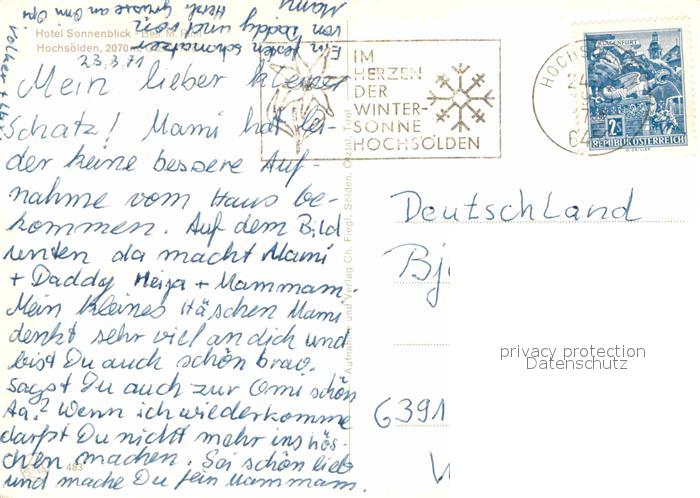 Hotel Sonnenblick - Bes. M.
Hochsölden, 2070 m
23.3.71
Mein lieber kleiner
Schatz! Mami hat lei-
der keine bessere Auf-
nahme vom Haus be-
kommen. Auf dem Bild
unten da macht Mami
+ Daddy Heija + Mammam.
Mein kleines Häschen Mami
denkt sehr viel an dich und
bist Du auch schön brav.
sagst Du auch zur Omi schön
Aa? Wenn ich wiederkomme
darfst Du nicht mehr ins Hös-
chen machen. Sei schön lieb
und mache Du fein Mammam.
Ein festen Schmatzer
von Daddy und von
Mami
Herzl. Grüsse an Omi Opi
483
Aufnahme und Verlag Ch. Fiegl, Sölden, Ötztal, Tirol
IM
HERZEN
DER
WINTER-
SONNE
HOCHSÖLDEN
HOCHS
24.
64
KLAGENFURT
2 S
REPUBLIK ÖSTERREICH
Deutschland
6391
privacy protection
Datenschutz